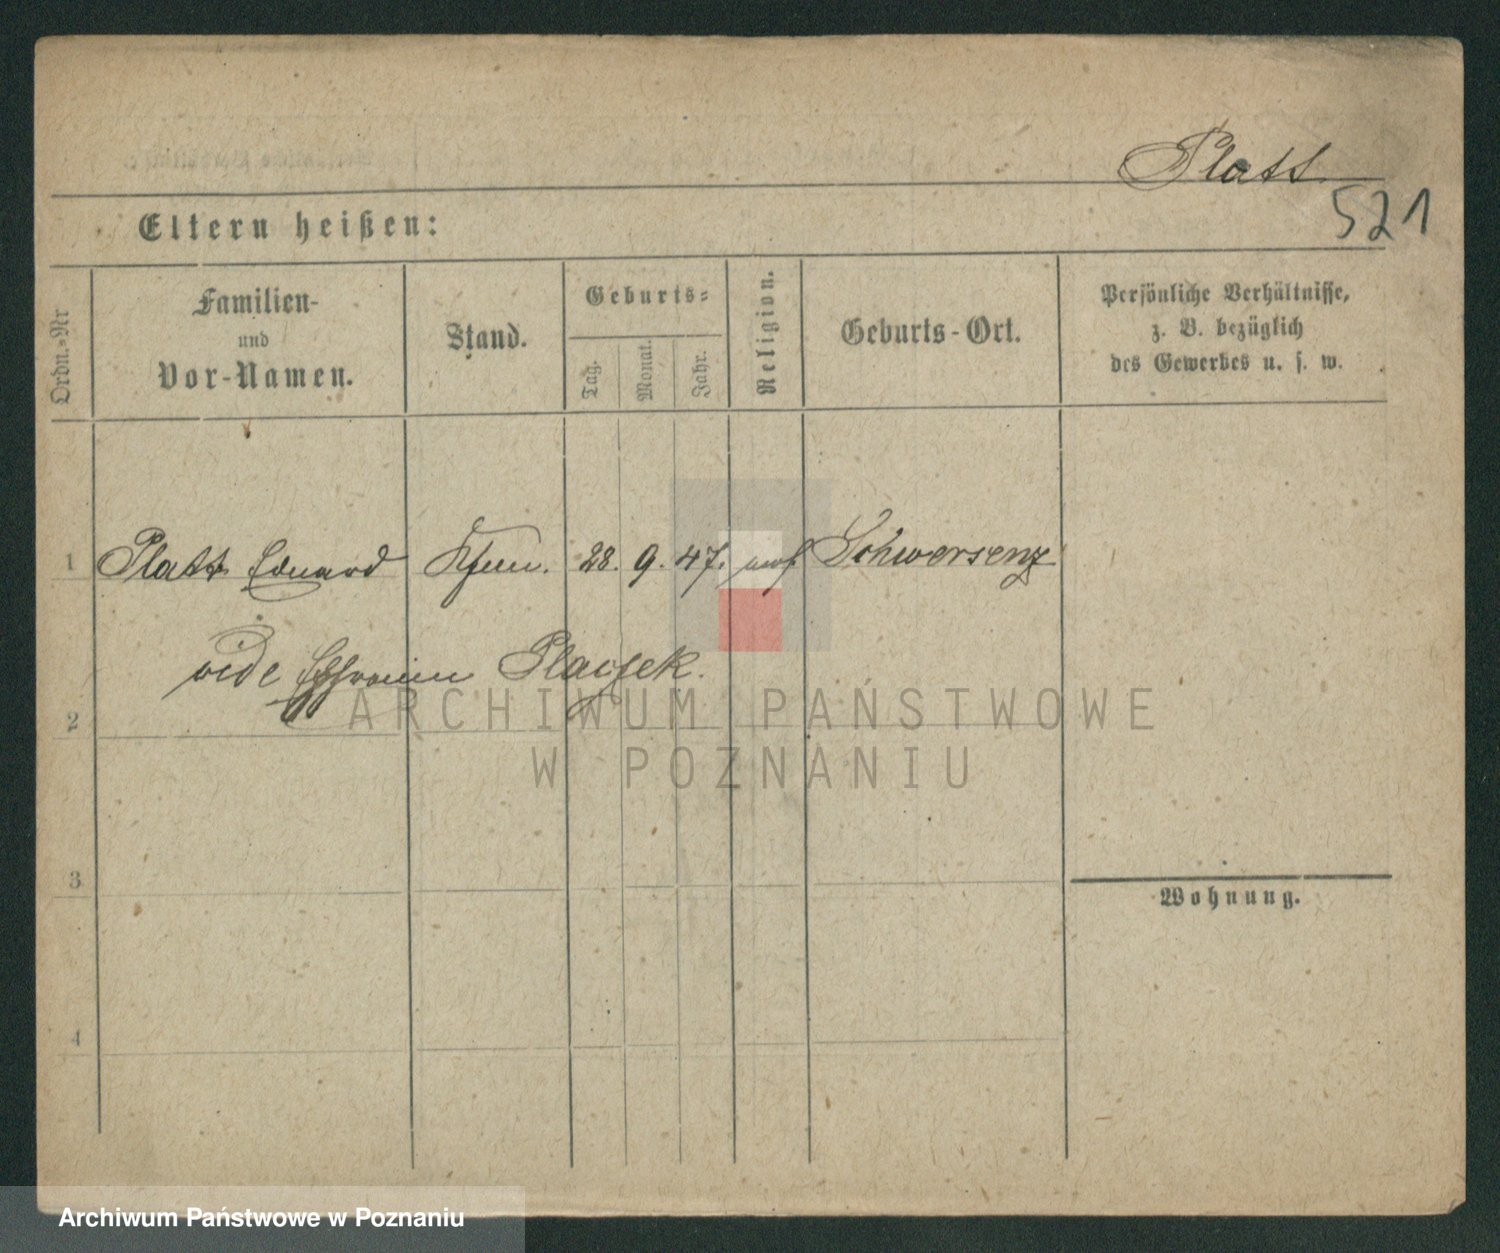 Platt
521
Eltern heißen:
Ordn.-Nr
Familien-
und
Vor-Namen.
Stand.
Geburts-
Tag.
Monat.
Jahr.
Religion.
Geburts-Ort.
Persönliche Verhältnisse,
z. B. bezüglich
des Gewerbes u. s. w.
1 Platt Eduard Kfm. 28. 9. 47. Schwersenz
vide Ephraim
2
3
Wohnung.
4
ARCHIWUM PAŃSTWOWE
W POZNANIU
Archiwum Państwowe w Poznaniu